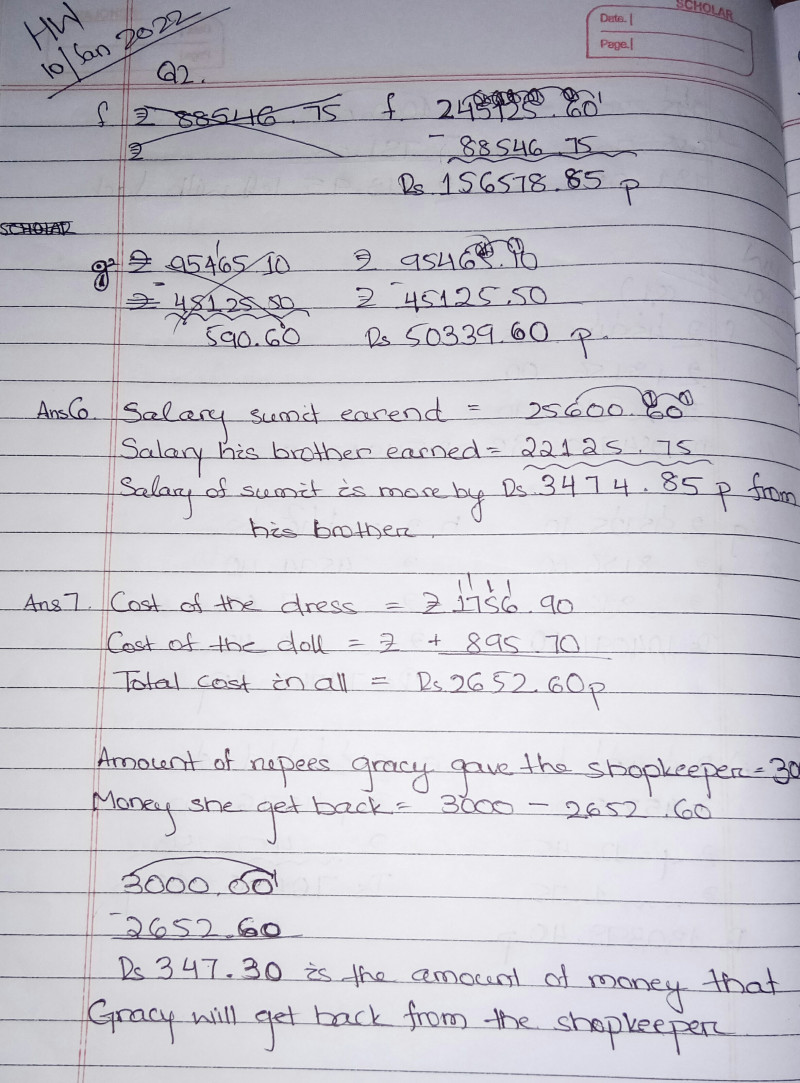 SCHOLAR
Date.
Page.
HW
10/Jan 2022
Q2.
f ₹ 88546.75 f. 245125.60
₹ - 88546.75
Rs 156578.85 p
SCHOLAR
g ₹ 95465.10 ₹ 95465.10
- ₹ 45125.50 - ₹ 45125.50
590.60 Rs 50339.60 p.
Ans6. Salary sumit earend = 25600.60
Salary his brother earned = 22125.75
Salary of sumit is more by Rs 3474.85 p from
his brother.
Ans7. Cost of the dress = ₹ 1756.90
Cost of the doll = ₹ + 895.70
Total cost in all = Rs 2652.60p
Amount of rupees gracy gave the shopkeeper = 30
Money she get back = 3000 - 2652.60
3000.00
-2652.60
Rs 347.30 is the amount of money that
Gracy will get back from the shopkeeper